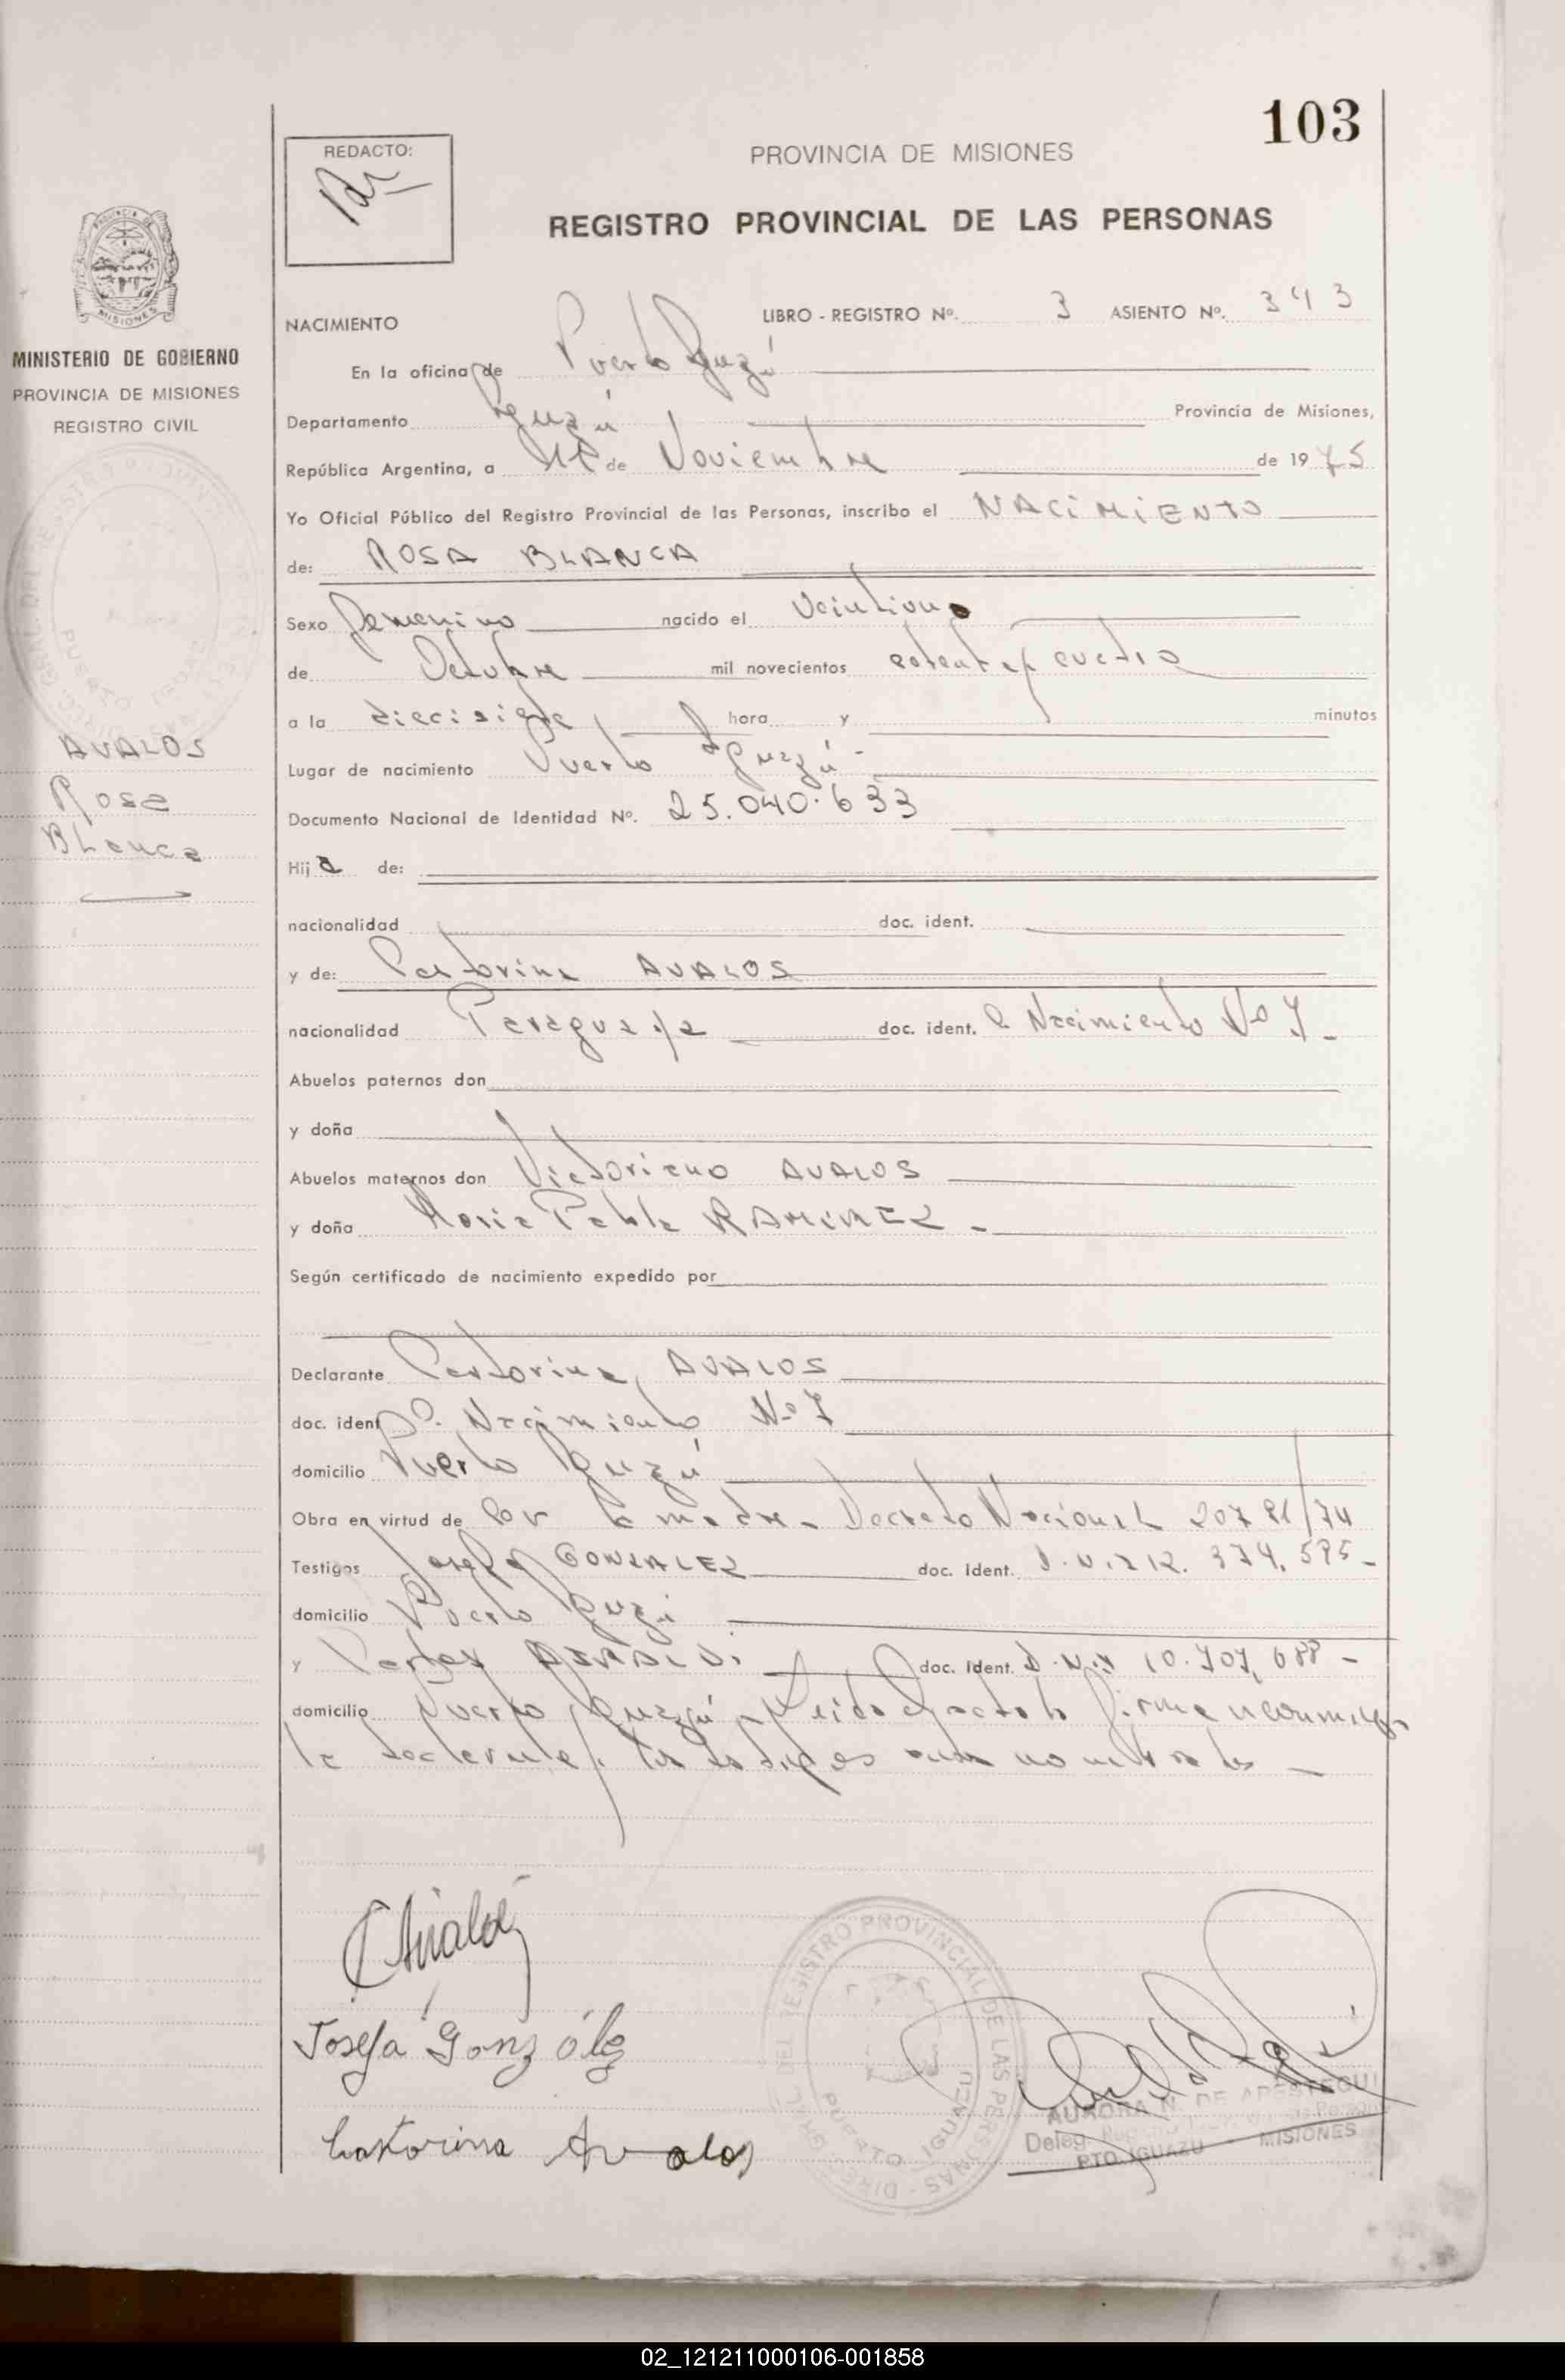 103
REDACTO:
PROVINCIA DE MISIONES
REGISTRO PROVINCIAL DE LAS PERSONAS
MISIONES
MINISTERIO DE GOBIERNO
PROVINCIA DE MISIONES
REGISTRO CIVIL
AVALOS
Rosa
Blanca
NACIMIENTO
LIBRO - REGISTRO Nº. 3 ASIENTO Nº. 343
En la oficina de Puerto Iguazú
Departamento Iguazú Provincia de Misiones,
República Argentina, a de Noviembre de 1975
Yo Oficial Público del Registro Provincial de las Personas, inscribo el NACIMIENTO
de: ROSA BLANCA
Sexo Femenino nacido el Veintiuno
de Octubre mil novecientos setenta y cuatro
a la diecisiete hora y minutos
Lugar de nacimiento Puerto Iguazú-
Documento Nacional de Identidad Nº. 25.040.633
Hija de:
nacionalidad doc. ident.
y de: Castorina AVALOS
nacionalidad Paraguaya doc. ident. Nacimiento Nº 7-
Abuelos paternos don
y doña
Abuelos maternos don Victoriano AVALOS
y doña Maria Pabla RAMIREZ -
Según certificado de nacimiento expedido por
Declarante Castorina AVALOS
doc. ident Nacimiento Nº 7
domicilio Puerto Iguazú
Obra en virtud de la madre - Decreto Nacional /74
Testigos Josefa GONZALEZ doc. ident.
domicilio Puerto Iguazú
y doc. ident. 10.707.088 -
domicilio Puerto Iguazú - Leida el acta la firman conmigo
la declarante y los testigos nombrados -
Josefa González
Castorina Avalos
DIREC. GRAL. DEL REGISTRO PROVINCIAL DE LAS PERSONAS -
PUERTO IGUAZU
AURORA N. DE
PTO. IGUAZU - MISIONES
02_121211000106-001858